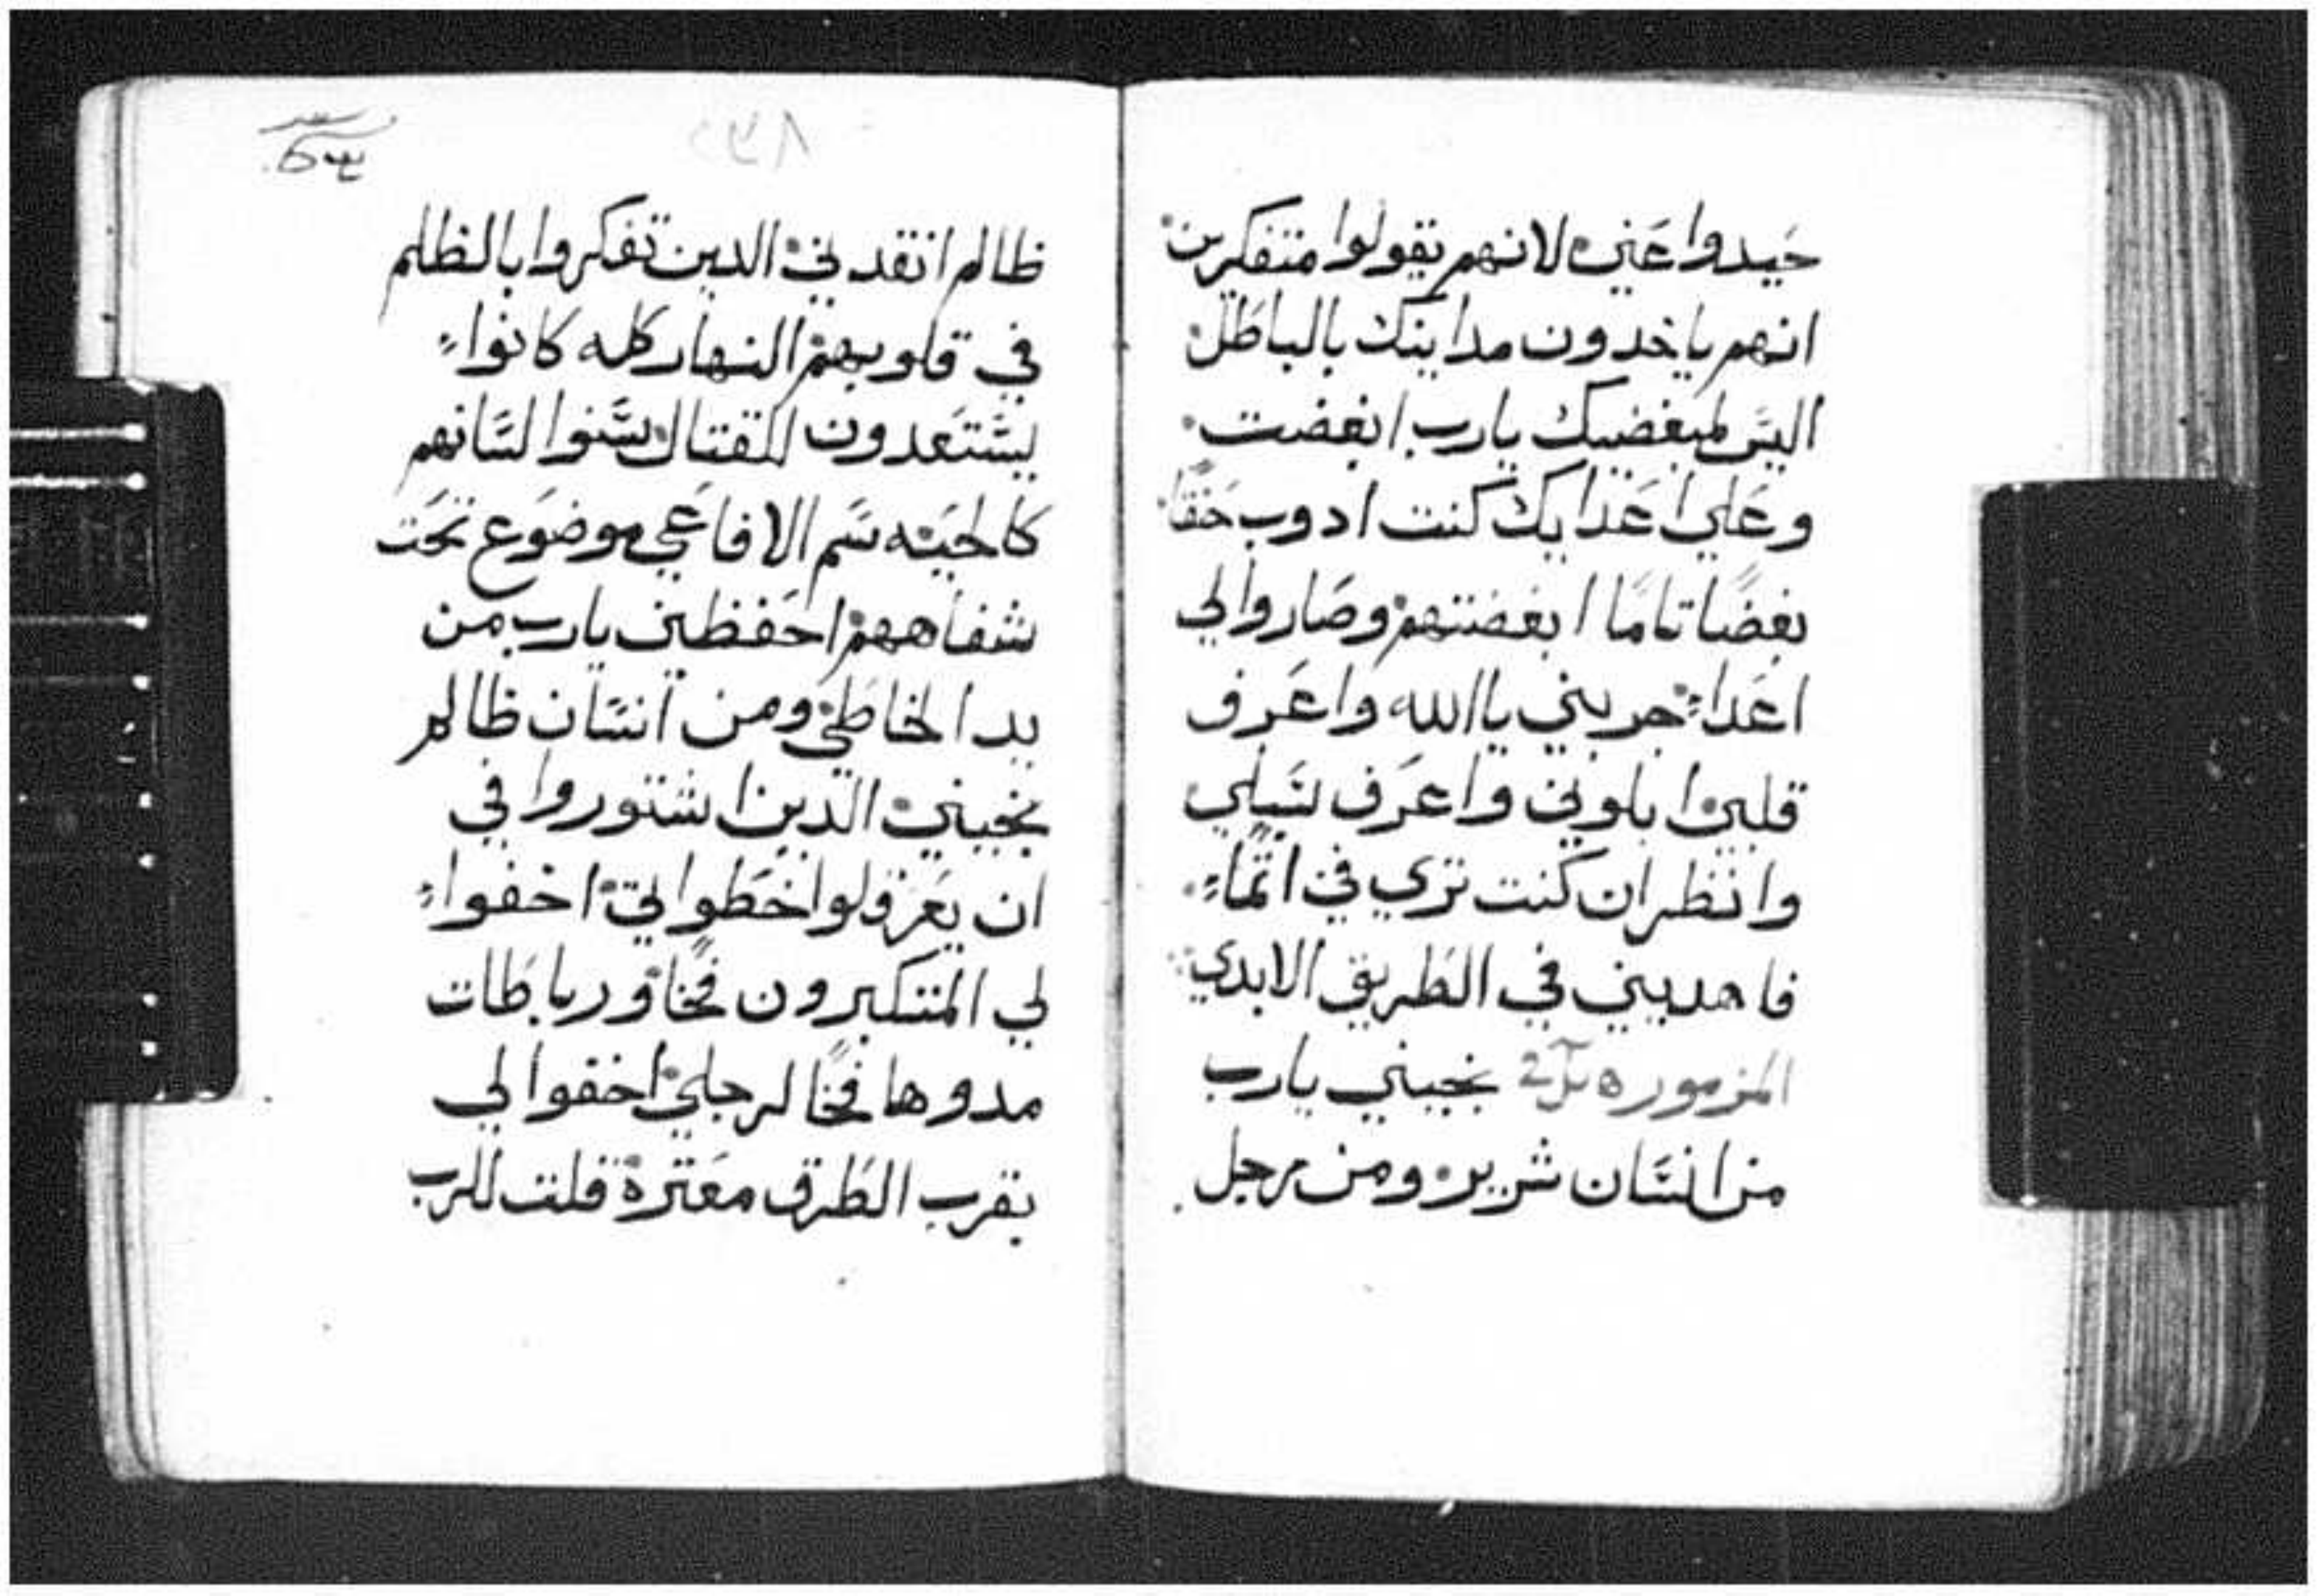 حيدوا عني لانهم يقولوا متفكرين
انهم ياخدون مداينك بالباطل
اليس لمبغضيك يارب ابغضت
وعلي اعدايك كنت ادوب حنقا
بغضًا تامًا ابغضتهم وصاروا لي
اعداء جربني يا الله واعرف
قلبي ابلوني واعرف سبلي
وانظر ان كنت تري في اثماء
فاهديني في الطريق الابدي
المزموره نجيني يارب
من انسان شرير ومن رجل
ظالم انقدني الدين تفكروا بالظلم
في قلوبهم النهار كله كانواء
يستعدون للقتال سنوا لسانهم
كالحيه سم الافاعي موضوع تحت
شفاههم احفظني يارب من
يد الخاطي ومن انسان ظالم
نجيني الدين اشتوروا في
ان يعرقلوا خطواتي اخفواء
لي المتكبرون فخا ورباطات
مدوها فخا لرجلي اخفوا لي
بقرب الطرق معترة قلت للرب